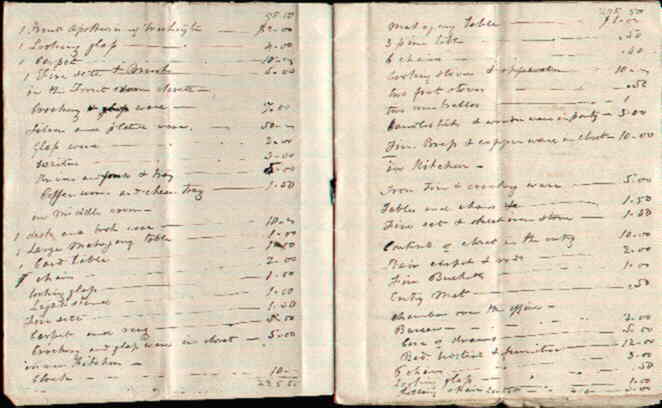 95.50
1 Print Apotheon of Washington — $2.00
1 Looking glass — 4.00
1 Carpet — 10.—
1 Fire sett & Brush — 5.00
in the Front room closett —
Crockery & glass ware — 7.00
Silver and plated ware — 50.—
Glass ware — 2.00
Waiter — 3.00
Knives and forks & tray — 5.00
Coffee urn and cheese tray — 1.50
in middle room —
1 desk and book case — 10.—
1 Large Mahogany table — 1.00
Card table — 2.00
chairs — 1.00
looking glass — 1.00
Light stand — 1.50
Fire sett — 5.00
Carpet and rug
Crockery and glass ware in closet — 5.00
in Kitchen —
Clock — 10.—
225.50
Mahogany table — $1.00
3 pine table — .50
6 chairs — .60
Cooking stove & apparatus — 10.—
two foot stoves — .50
two umbrellas — 1
Candlesticks & wooden ware in pantry — 3.00
Tin, Brass & copper ware in closet — 10.00
in Kitchen —
Iron Tin & crockery ware — 5.00
Tables and chairs — 1.50
Fire sett & — 1.50
Contents of closet in the entry — 10.00
Stair carpet & rods — 2.00
Fire Buckets — 1.00
Entry Mat — .50
Chamber over the office —
Bureau — 2.00
Case of draws — 5.00
Bed, bedsted & furniture — 12.00
6 chairs — 3.00
Looking glass — .50
1.00